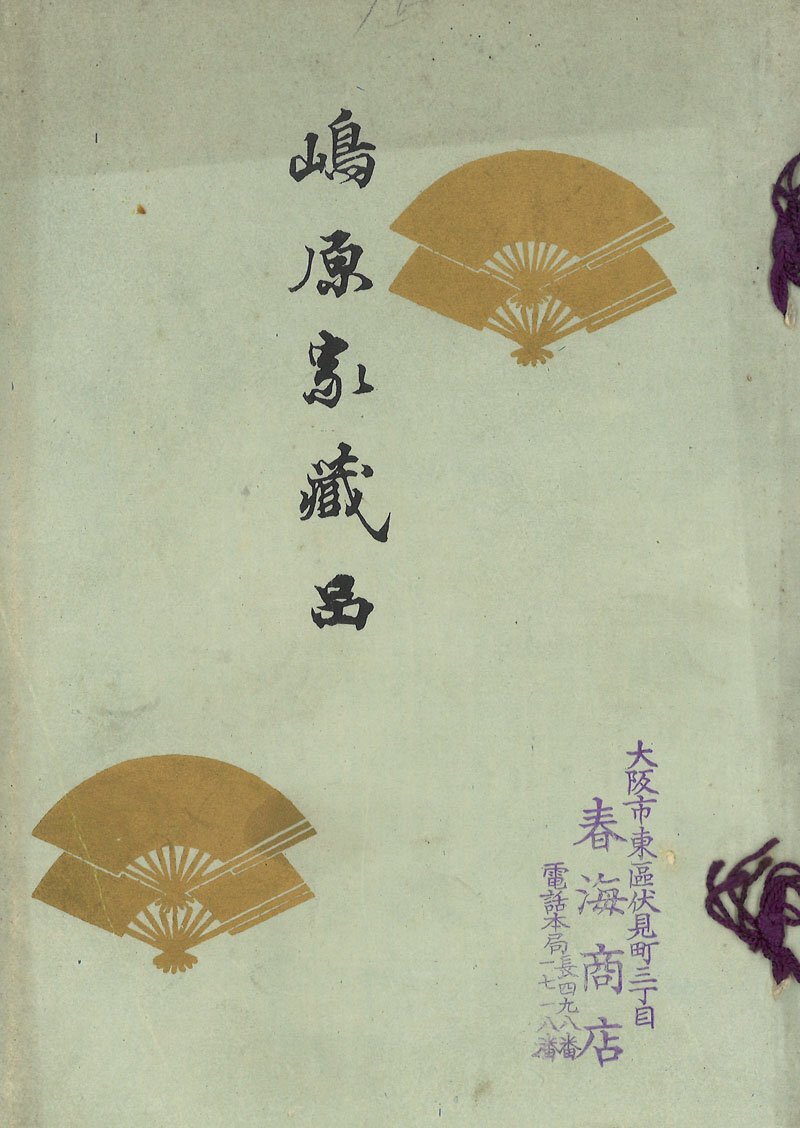 嶋原家藏品
大阪市東區伏見町三丁目
春海商店
電話本局長四九八番
一七一八番